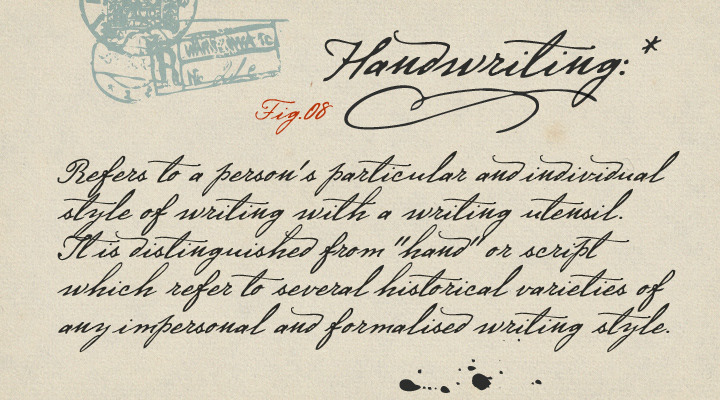 Handwriting:*
Fig.08
Refers to a person's particular and individual
style of writing with a writing utensil.
It is distinguished from "hand" or script
which refer to several historical varieties of
any impersonal and formalised writing style.